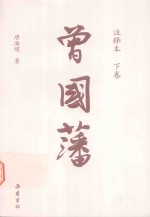 注释本 下卷
唐浩明 著
曾國藩
岳麓书社